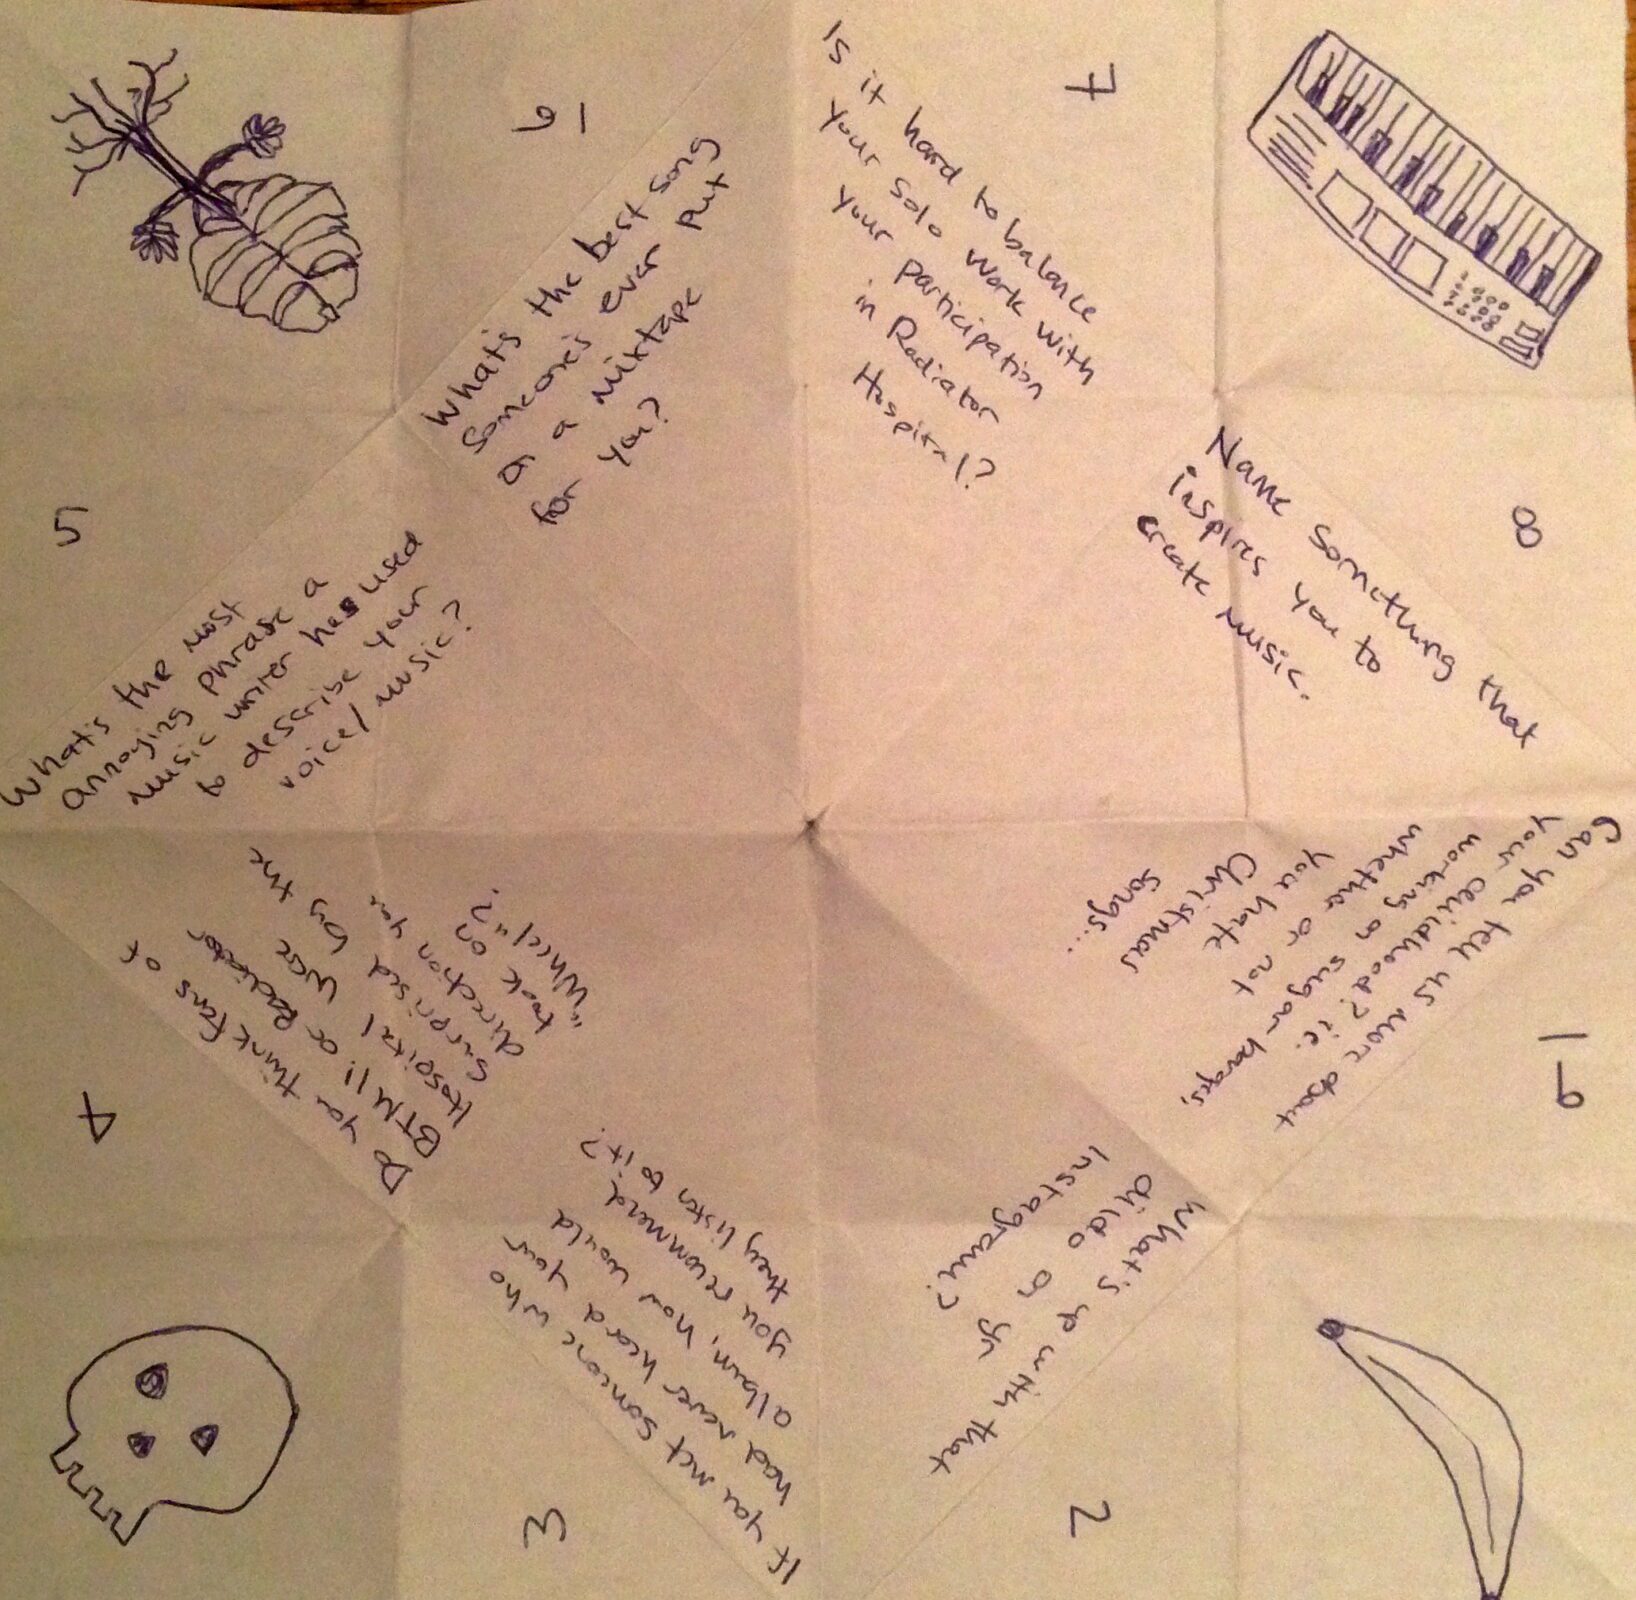 6
What's the best song
someone's ever put
on a mixtape
for you?
7
Is it hard to balance
your solo work with
your participation
in Radiator
Hospital?
8
Name something that
inspires you to
create music.
5
What's the most
annoying phrase a
music writer has used
to describe your
voice/music?
4
Do you think fans of
BTMI! or Radiator
Hospital were
surprised by the
direction you
took on
"Wheel"?
9
Can you tell us more about
your childhood? ie.
working on sugar barges,
whether or not
you hate
Christmas
songs...
3
If you met someone who
had never heard your
album, how would
you recommend
they listen to it?
2
What's up with that
dildo on yr
Instagram?